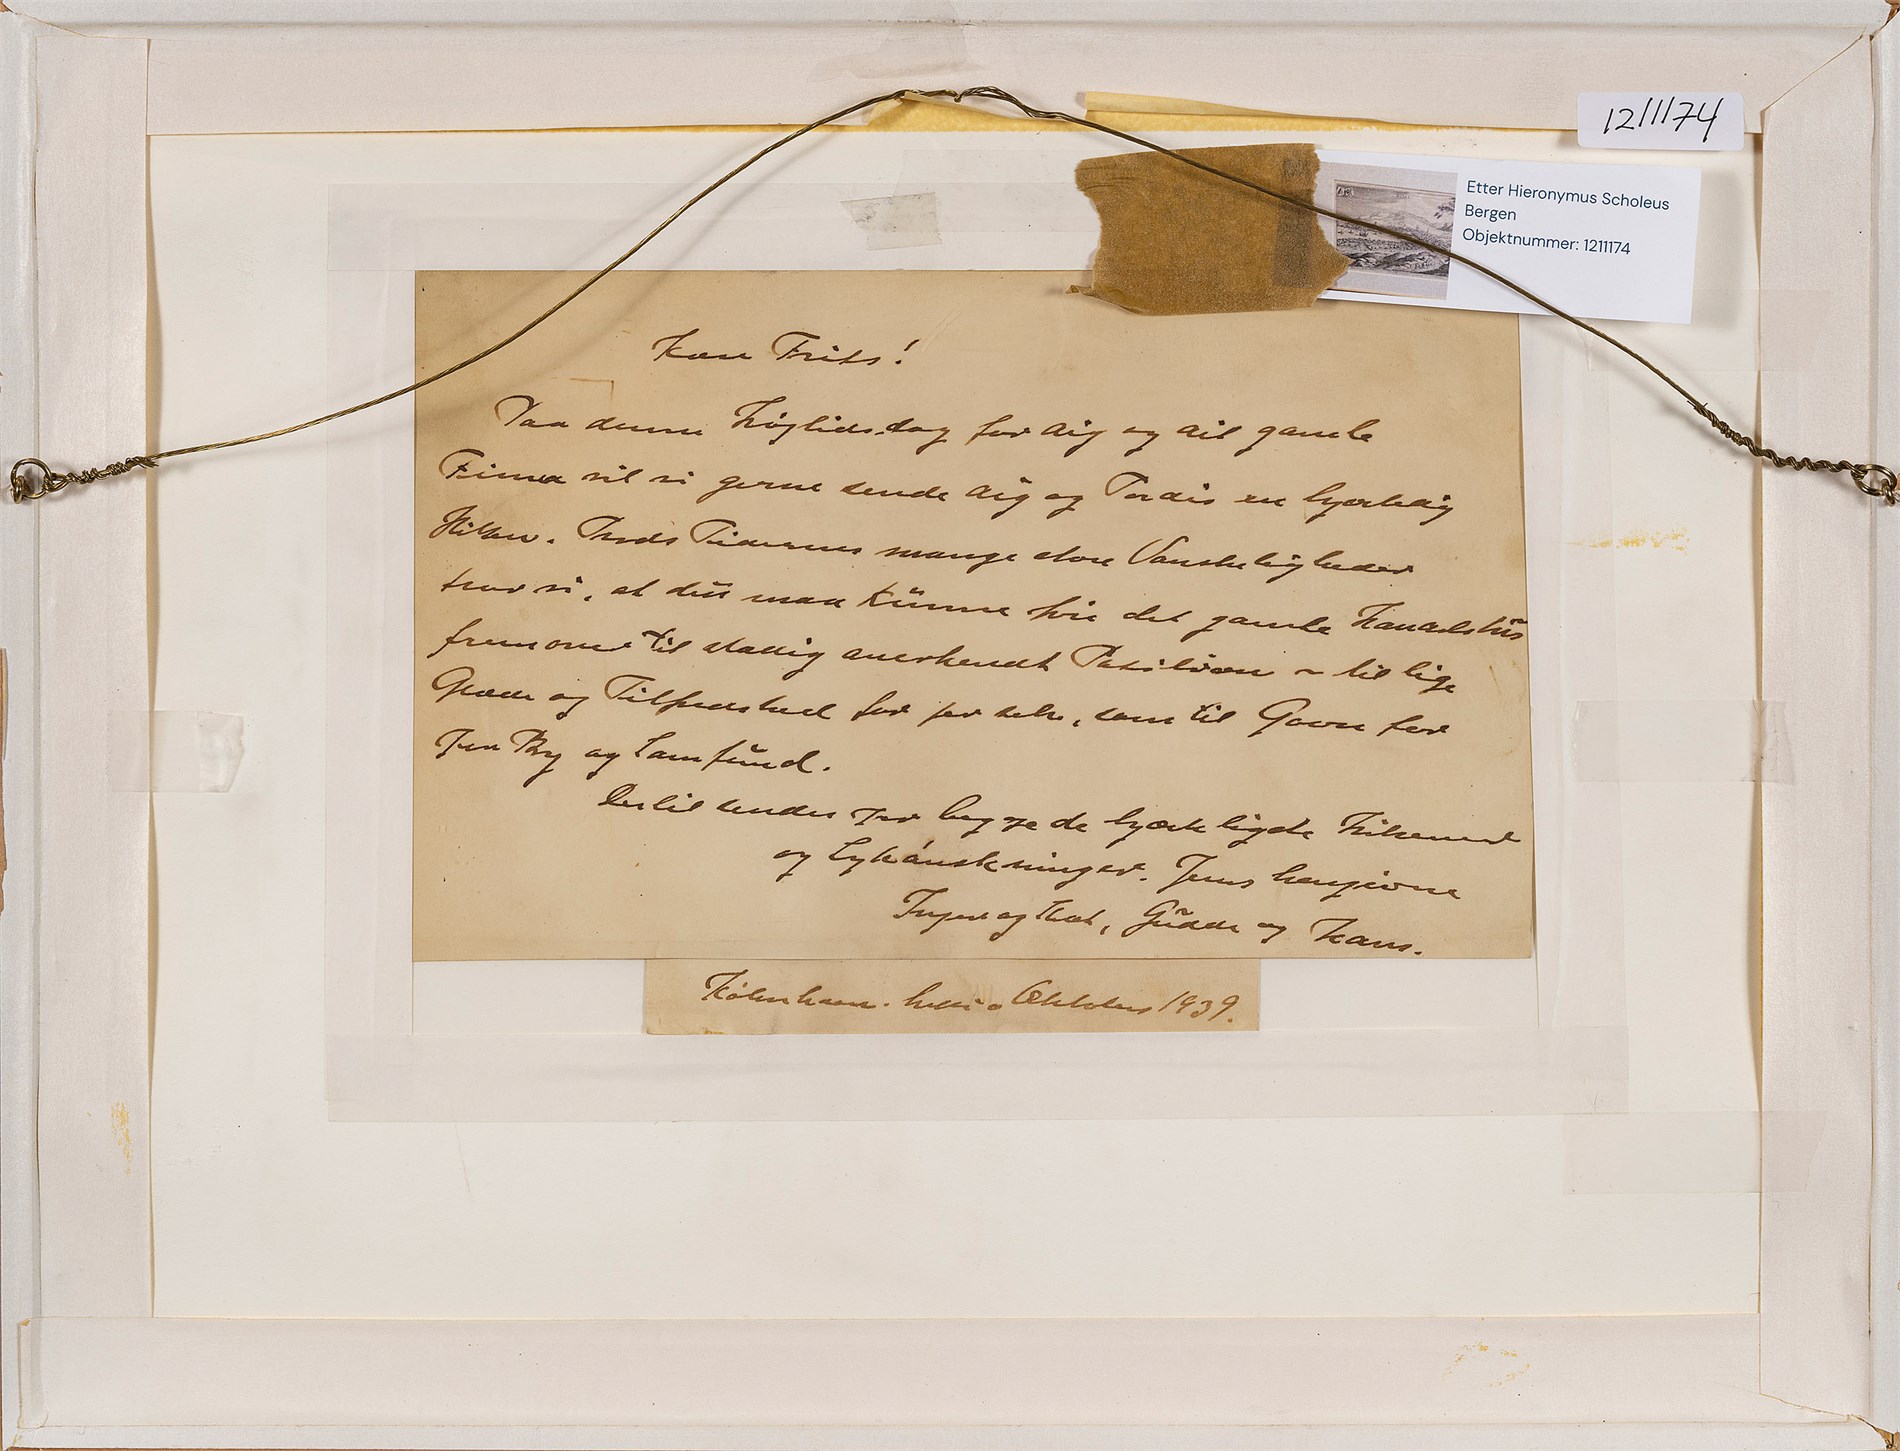 1211174
Etter Hieronymus Scholeus
Bergen
Objektnummer: 1211174
Kære Frits!
Paa denne Højtidsdag for dig og dit gamle
Firma vil vi gerne sende dig og Tordis en hjertelig
Hilsen. Trods Tidernes mange store Vanskeligheder
tror vi, at du maa kunne føre det gamle Handelshus
frem over til stadig anerkendt Position ~ til lige
Glæde og Tilfredshed for jer selv, som til Gavn for
Jer By og Samfund.
Dertil sendes jer begge de hjerteligste Hilsener
og Lykønskninger. Jeres hengivne
Inger og , Gudde og Hans.
København. Oktober 1939.